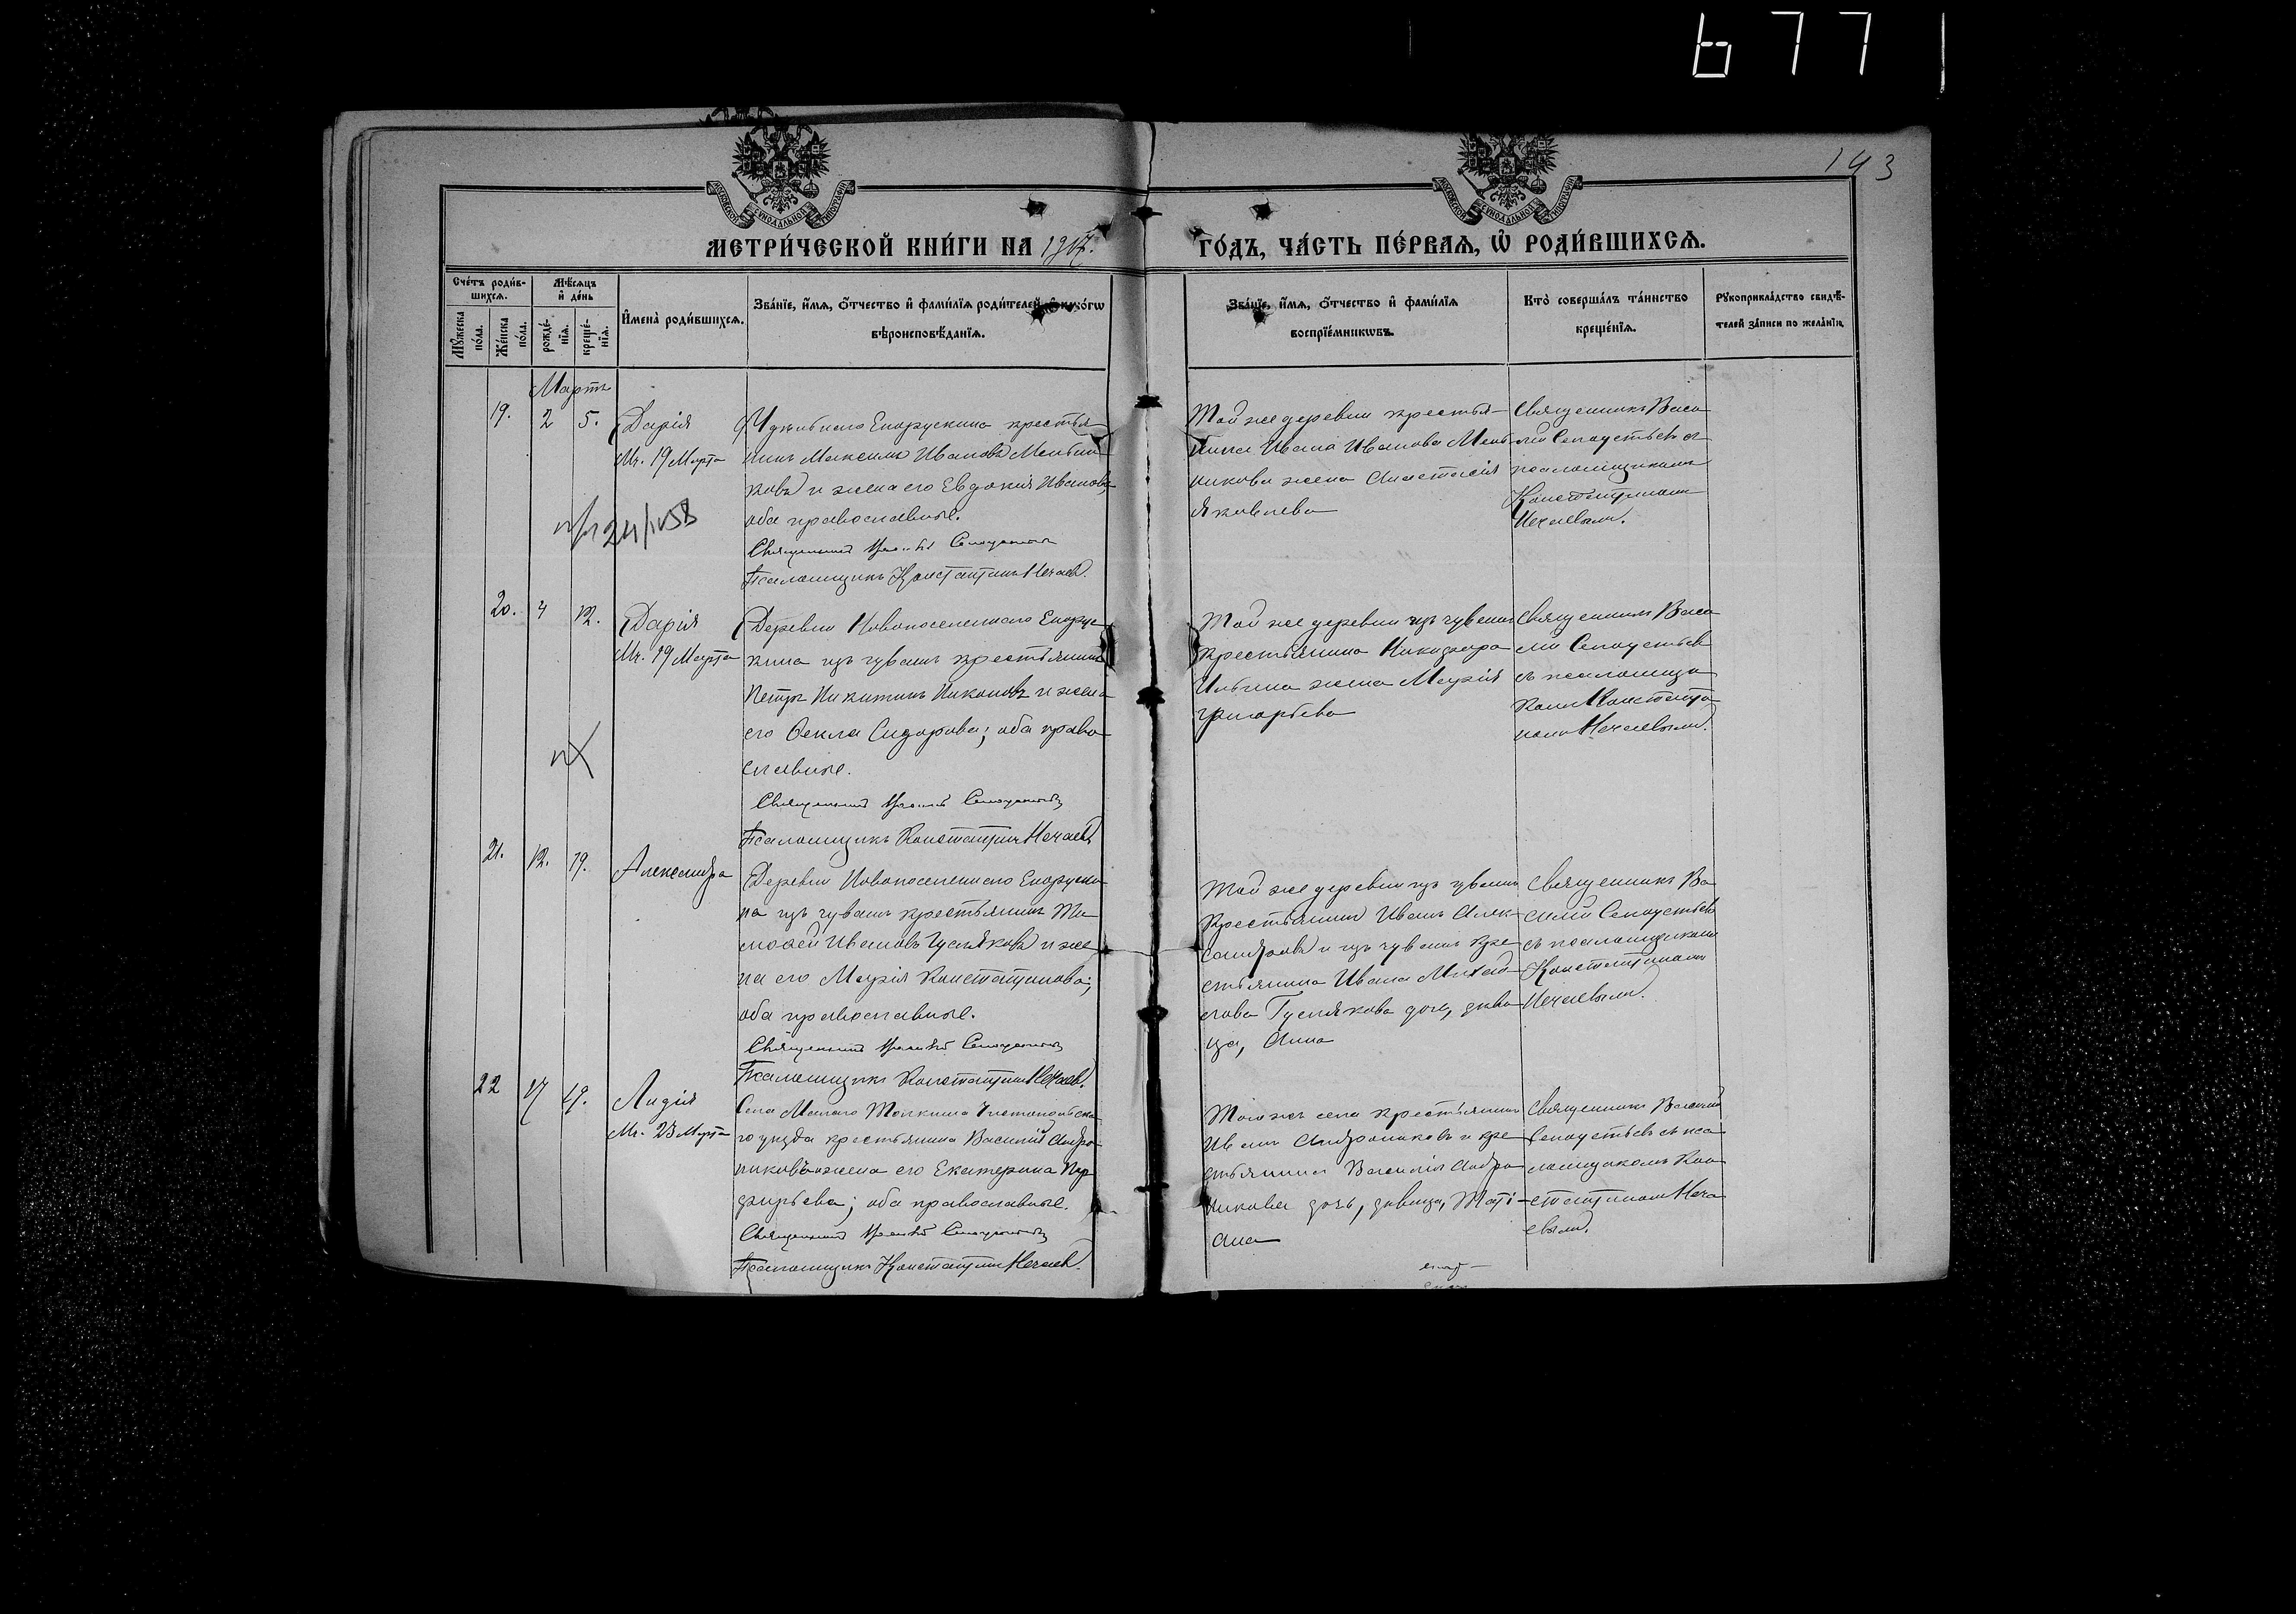 677
143
МОСКОВСКОЙ СѴНОДАЛЬНОЙ ТИПОГРАФІИ
МОСКОВСКОЙ СѴНОДАЛЬНОЙ ТИПОГРАФІИ
МЕТРИ́ЧЕСКОЙ КНИ́ГИ НА 1917. ГО́ДЪ, ЧА́СТЬ ПЕ́РВАѦ, Ѡ҆ РОДИ́ВШИХСѦ.
Сче́тъ роди́в-
шихсѧ.
Мꙋ́жеска по́ла.
Же́нска по́ла.
Мѣ́сѧцъ
и҆ де́нь
рожде́-
нїѧ.
креще́-
нїѧ.
И҆мена̀ роди́вшихсѧ.
Зва́нїе, и҆́мѧ, ѻ҆́тчество и҆ фами́лїѧ роди́телей, и҆ како́гѡ
вѣроисповѣ́данїѧ.
Зва́нїе, и҆́мѧ, ѻ҆́тчество и҆ фами́лїѧ
воспрїе́мникѡвъ.
Кто̀ соверша́лъ та́инство
креще́нїѧ.
Рꙋкоприкла́дство свидѣ́-
телей за́писи по жела́нїю.
Мартъ
19. 2 5.
Дарія
Мч. 19 Марта
Енорускина крестья-
нинъ Максимъ Ивановъ
ковъ и жена его Евдокія Иванова,
оба православные.
Священникъ
Псаломщикъ Константинъ Нечаевъ.
Той же деревни крестья-
нина Ивана Иванова Мень-
шикова жена Анастасія
Яковлева
Священникъ Васи-
лій съ
псаломщикомъ
Константиномъ
Нечаевымъ.
24/IV58
20. 4 12.
Дарія
Мч. 19 Марта
Деревни Новопоселеннаго Енорус-
кина изъ чувашъ крестьянинъ
Петръ Никитинъ Никоновъ и жена
его Ѳекла Сидорова; оба право-
славные.
Священникъ
Псаломщикъ Константинъ Нечаевъ
Той же деревни изъ чувашъ
крестьянина Никифора
Ильина жена Марія
Григорьева
Священникъ Васи-
лій
съ псаломщи-
комъ Константи-
номъ Нечаевымъ.
21. 12. 19.
Александра
Деревни Новопоселеннаго Еноруски-
на изъ чувашъ крестьянинъ Ти-
моѳей Ивановъ Гусляковъ и же-
на его Марія Константинова;
оба православные.
Священникъ
Псаломщикъ Константинъ Нечаевъ.
Той же деревни изъ чувашъ
крестьянинъ Иванъ Алек-
сандровъ и изъ чувашъ кре-
стьянина Ивана Михай-
лова Гуслякова дочь, дѣви-
ца, Анна
Священникъ Ва-
силій
съ псаломщикомъ
Константиномъ
Нечаевымъ.
22 17 19.
Лидія
Мч. 23 Марта
Села Малаго Толкина Чистопольска-
го уѣзда крестьянинъ Василій Андро-
никовъ и жена его Екатерина Пор-
фирьева; оба православные.
Священникъ
Псаломщикъ Константинъ Нечаевъ.
Того же села крестьянинъ
Иванъ Андрониковъ и кре-
стьянина Василія Андро-
никова дочь, дѣвица, Тати-
ана
Священникъ Василій
съ пса-
ломщикомъ Кон-
стантиномъ Неча-
евымъ.